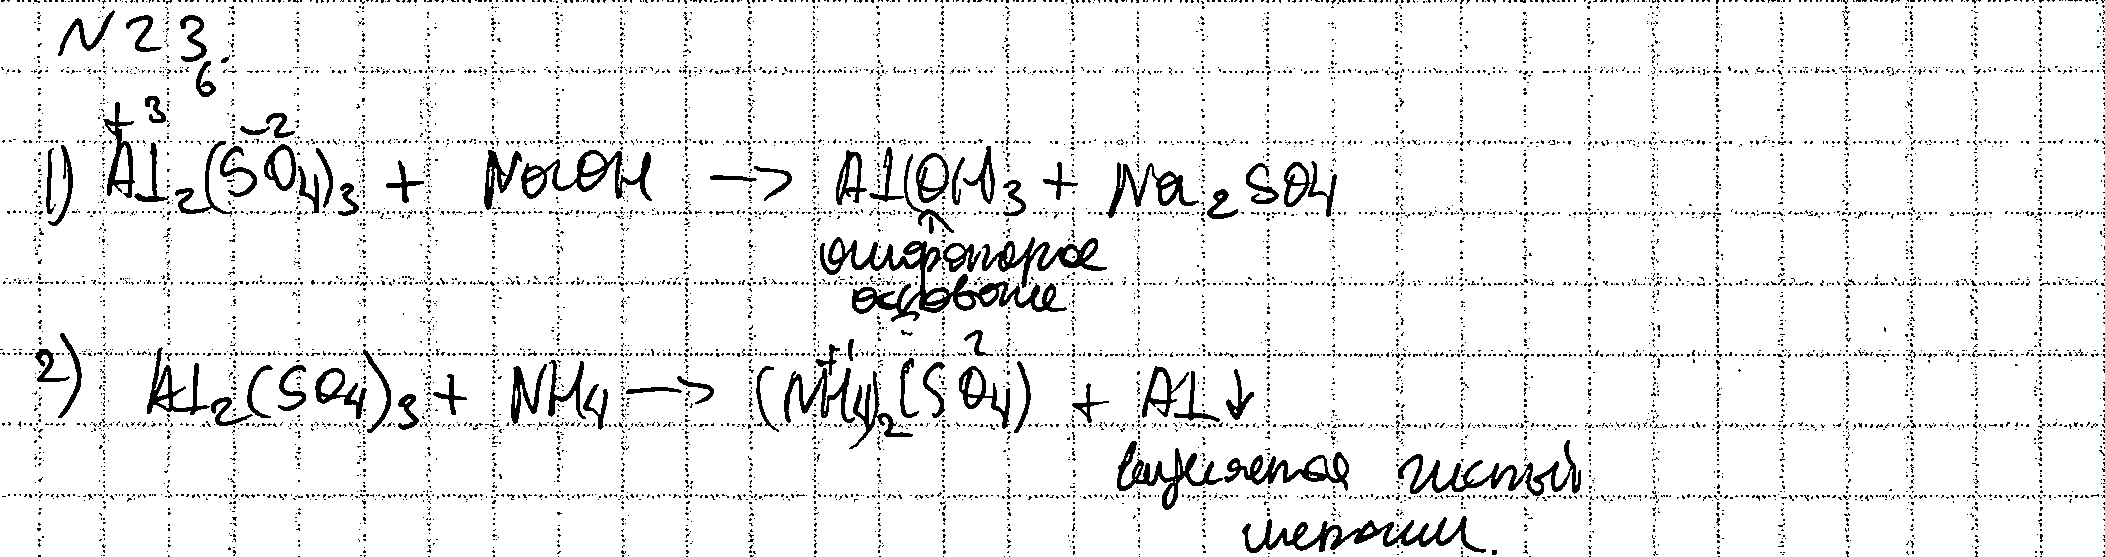 N23.
6
+3 -2
1) Al₂(SO₄)₃ + NaOH → Al(OH)₃ + Na₂SO₄
↑
амфотерное
основание
+1 2
2) Al₂(SO₄)₃ + NH₄ → (NH₄)₂(SO₄) + Al↓
выделяется чистый
металл.